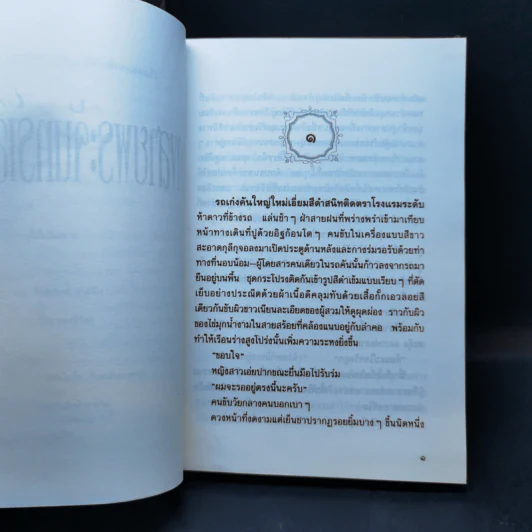 ๑
รถเก๋งคันใหญ่ใหม่เอี่ยมสีดำสนิทติดตราโรงแรมระดับ
ห้าดาวที่ข้างรถ แล่นช้า ๆ ฝ่าสายฝนที่พร่างพรำเข้ามาเทียบ
หน้าทางเดินที่ปูด้วยอิฐก้อนโต ๆ คนขับในเครื่องแบบสีขาว
สะอาดกุลีกุจอลงมาเปิดประตูด้านหลังและกางร่มรอรับด้วยท่า
ทางที่นอบน้อม—ผู้โดยสารคนเดียวในรถคันนั้นก้าวลงจากรถมา
ยืนอยู่บนพื้น ชุดกระโปรงติดกันเข้ารูปสีดำเข้มแบบเรียบ ๆ ที่ตัด
เย็บอย่างประณีตด้วยผ้าเนื้อดีคลุมทับด้วยเสื้อกั๊กเอวลอยสี
เดียวกันขับผิวขาวเนียนละเอียดของผู้สวมให้ดูผุดผ่อง ราวกับผิว
ของไข่มุกน้ำงามในสายสร้อยที่คล้องแนบอยู่กับลำคอ พร้อมกับ
ทำให้เรือนร่างสูงโปร่งนั้นเพิ่มความระหงยิ่งขึ้น
"ขอบใจ"
หญิงสาวเอ่ยปากขณะยื่นมือไปรับร่ม
"ผมจะรออยู่ตรงนี้นะครับ"
คนขับวัยกลางคนบอกเบา ๆ
ดวงหน้าที่งดงามแต่เย็นชาปรากฏรอยยิ้มบาง ๆ ขึ้นนิดหนึ่ง
๑